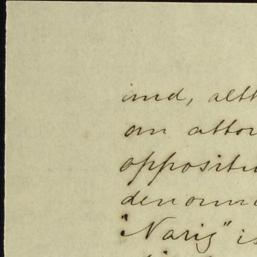 ind, alth
an attor
oppositi
denomin
"Naris" is